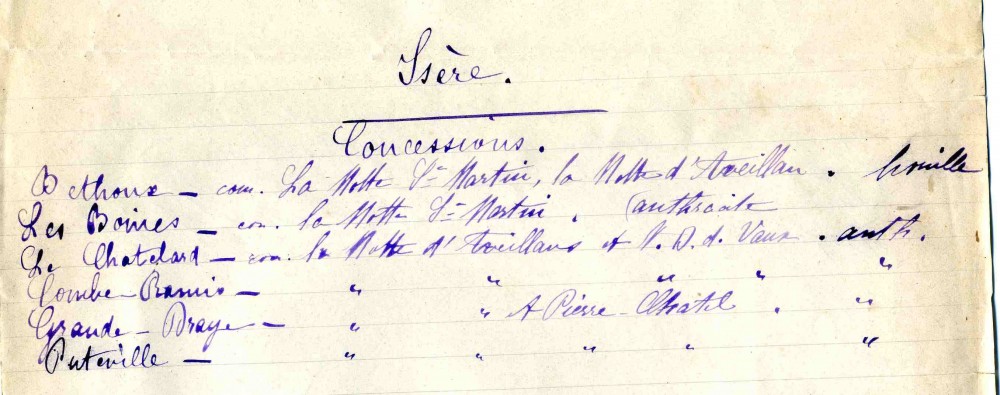 Isère.
Concessions.
Bethoux — com. La Motte St Martin, la Motte d'Aveillan. houille
Les Boines — com. la Motte St Martin. (anthracite
Le Chatelard — com. la Motte d'Aveillans et N. D. d. Vaux. anth.
Combe-Ramis — " " " " "
Grande-Draye — " " et Pierre-Châtel. "
Puteville — " " " " "